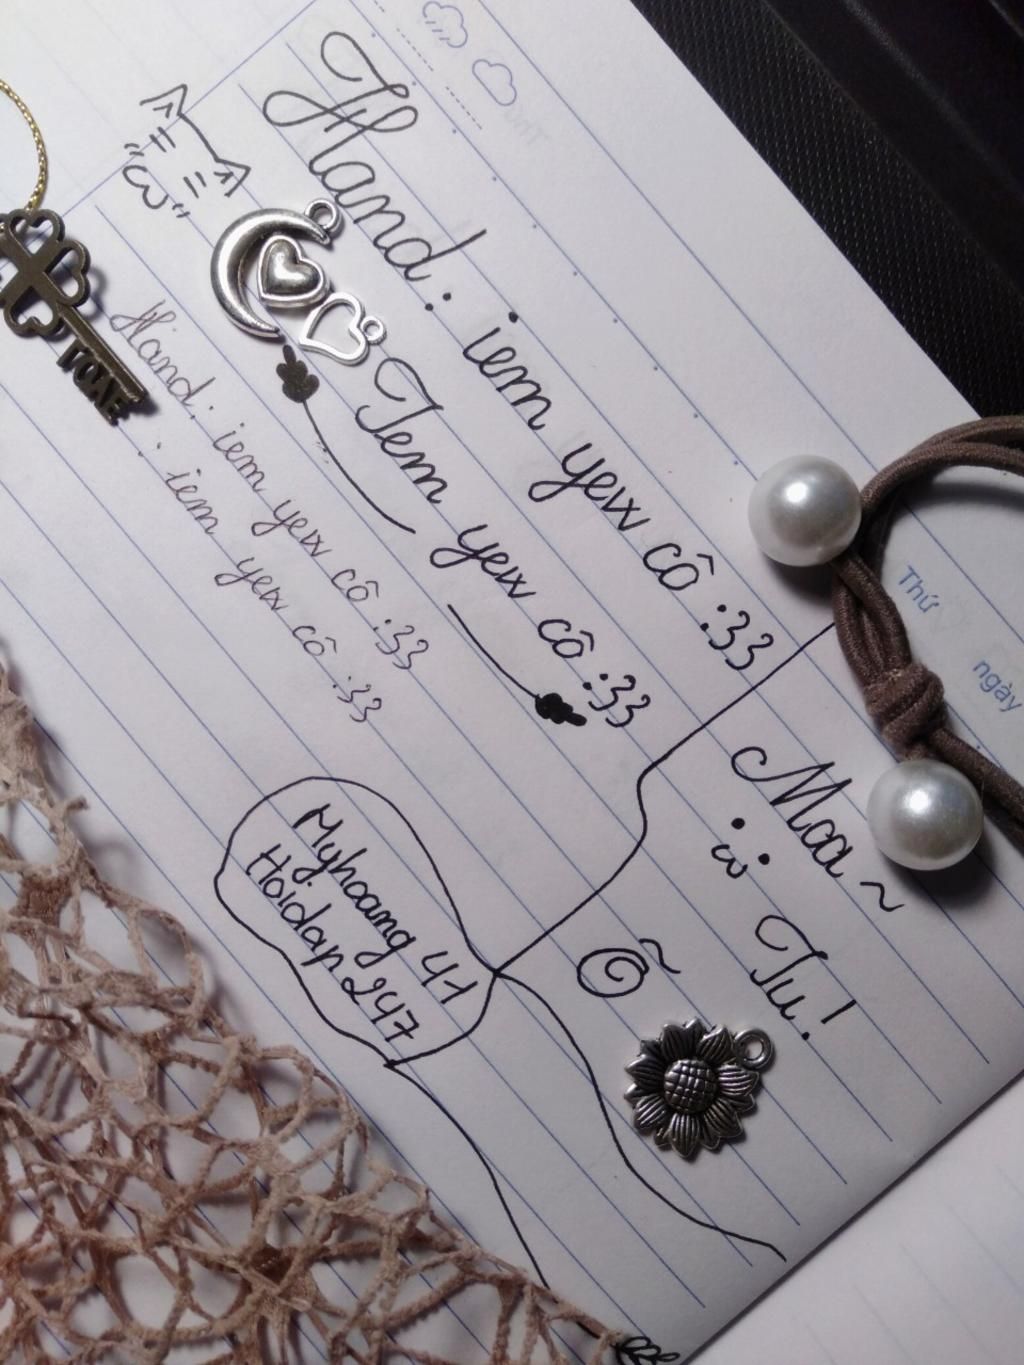 Hand: iem yeux cô :33
Iem yeux cô :33
Hand: iem yeux cô :33
: iem yeux cô :33
Myhoang 41
Hoidap247
Moa ~
Tu!
Thứ
ngày